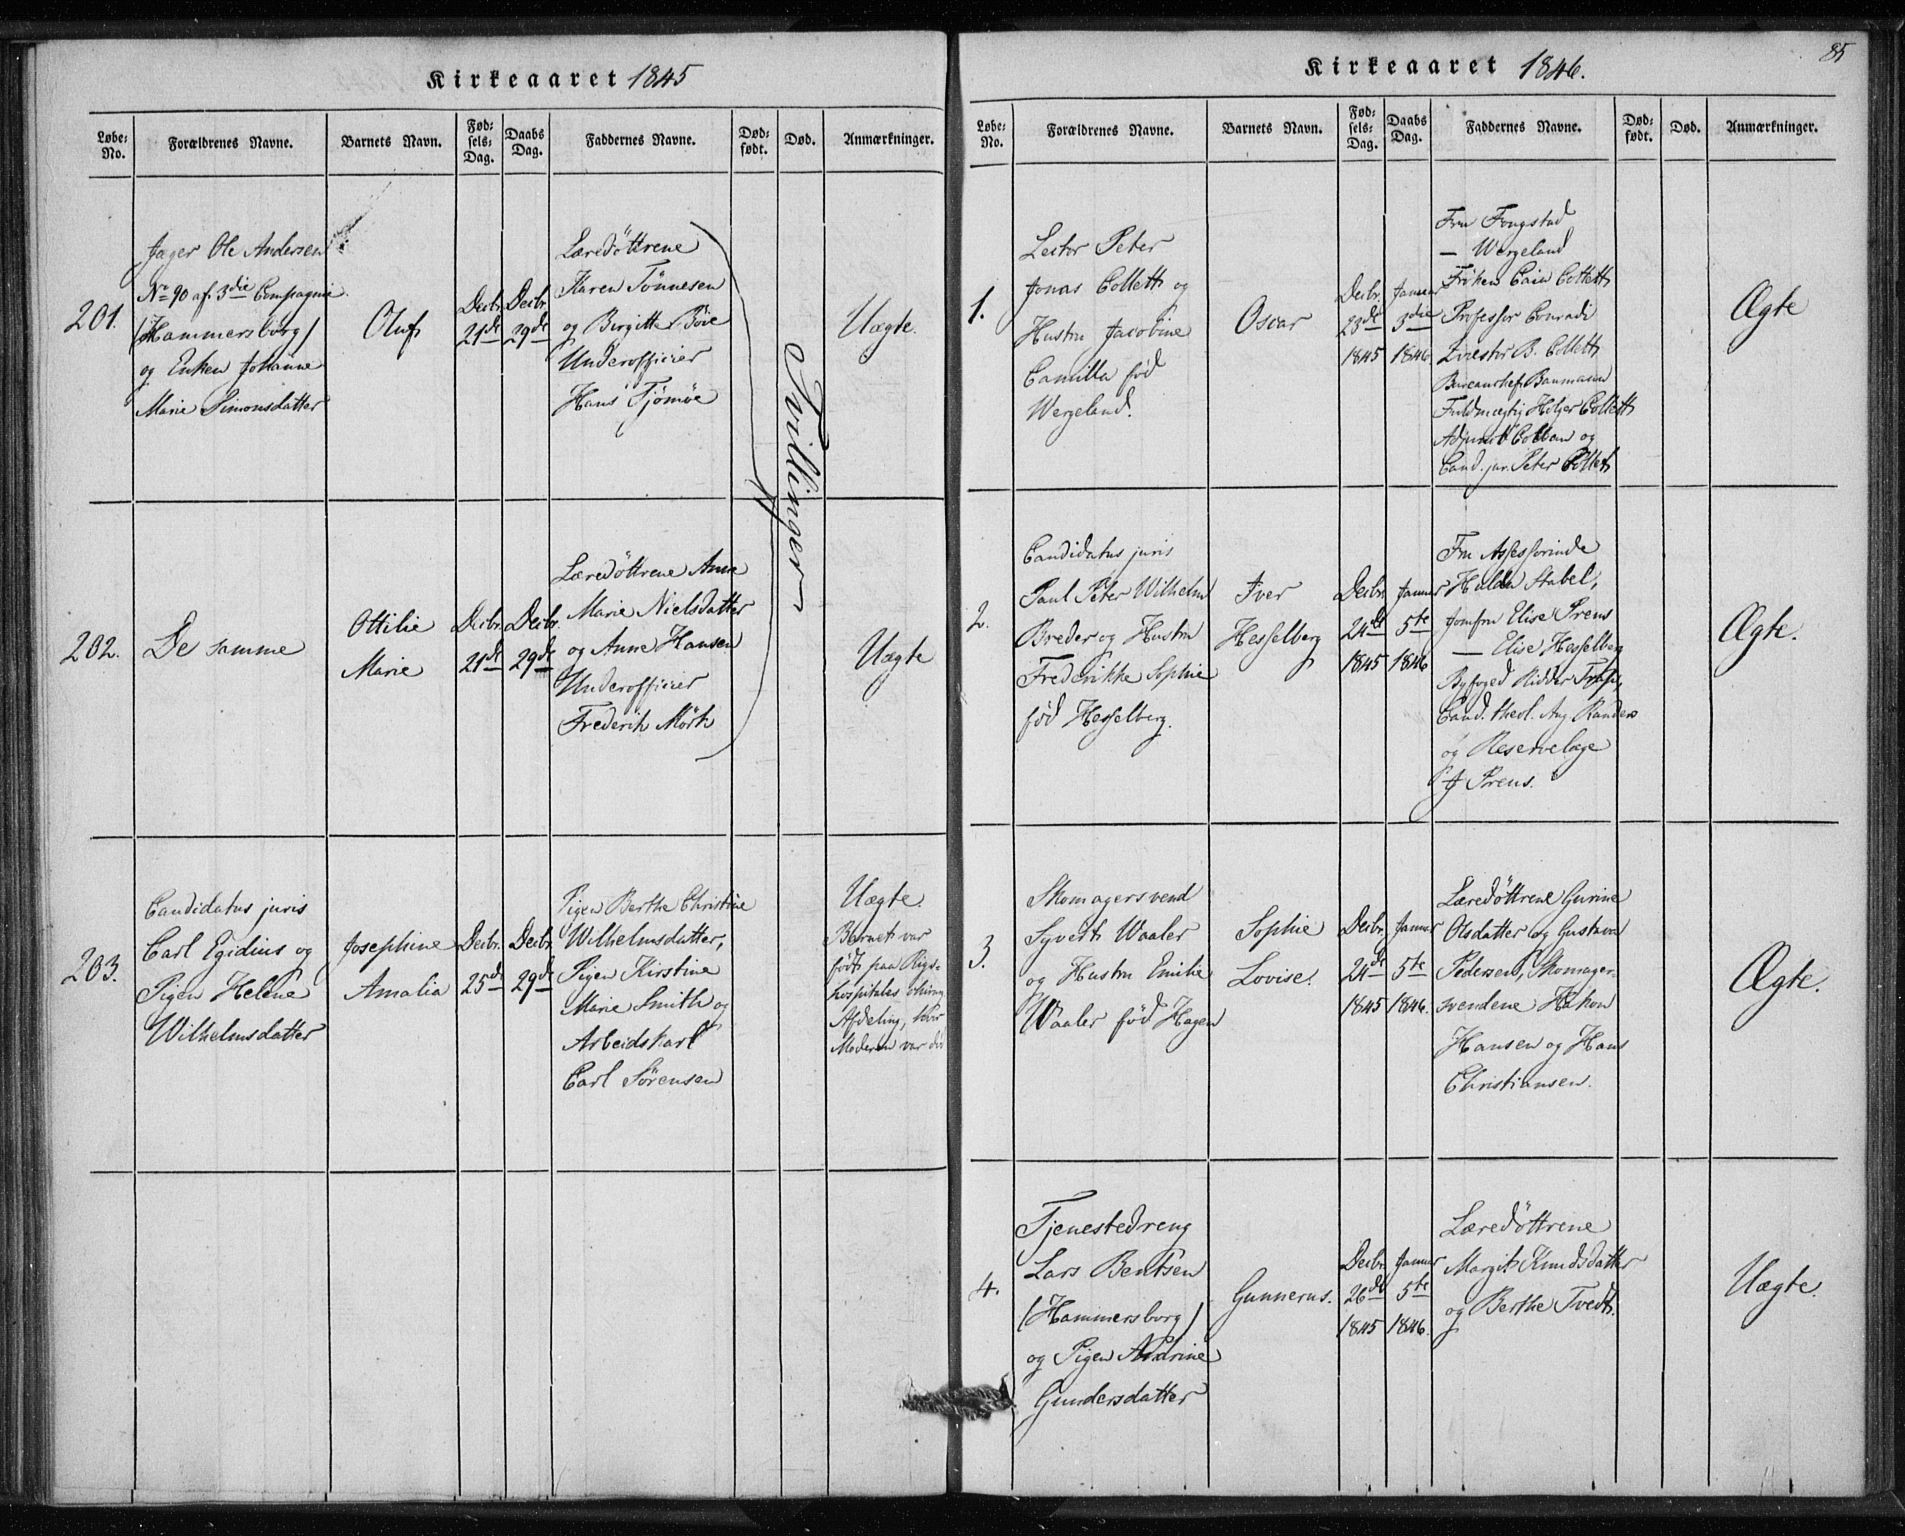 Kirkeaaret 1845
Løbe-No. Forældrenes Navne. Barnets Navn. Fødsels-Dag. Daabs Dag. Faddernes Navne. Død-født. Død. Anmærkninger.
201.
Jæger Ole Andersen
No 90 af 3die Compagnie
(Hammersborg)
og Enken Johanne
Marie Simonsdatter
Oluf
Decbr. 21de
Decbr. 29de
Læredöttrene
Karen Tönnesen
og Birgitte Böie
Underofficier
Hans Tjömöe
Uægte.
Tvillinger
202.
De samme
Ottilie
Marie
Decbr. 21de
Decbr. 29de
Læredöttrene Anne
Marie Nielsdatter
og Anne Hansen
Underofficier
Frederik Mörk
Uægte
203.
Candidatus juris
Carl Egidius og
Pigen Helene
Wilhelmsdatter
Josephine
Amalia
Decbr. 25de
Decbr. 29de
Pigen Berthe Christine
Wilhelmsdatter,
Pigen Kirstine
Marie Smith og
Arbeidskarl
Carl Sörensen
Uægte
Barnet var
födt paa Rigs-
hospitalets chirurg.
Afdeling, hvor
Moderen var
Kirkeaaret 1846.
85
Løbe-No. Forældrenes Navne. Barnets Navn. Fødsels-Dag. Daabs Dag. Faddernes Navne. Død-født. Død. Anmærkninger.
1.
Lector Peter
Jonas Collett og
Hustru Jacobine
Camilla föd
Wergeland.
Oscar
Decbr. 23de 1845
Januar 3die 1846
Fru Fougstad
— Wergeland
Fröken Caia Collett
Professor Conradi
B. Collett
Bureauchef Baumann
Fuldmægtig Holger Collett
Adjunct Colban og
Cand. jur. Peter Collett
Ægte
2.
Candidatus juris
Paul Peter Wilhelm
Breder og Hustru
Frederikke Sophie
föd Hesselberg.
Iver
Hesselberg
Decbr. 24de 1845
Januar 5te 1846
Fru Assessorinde
Hulda Stabel,
Jomfru Elise Prens
— Elise Hesselberg
Byfoged Ridder
Cand. theol. Aug Randers
og Reservelæge
J Prens.
Ægte.
3.
Skomagersvend
Syvert Waaler
og Hustru Emilie
Waaler föd Hagen
Sophie
Lovise.
Decbr. 24de 1845
Januar 5te 1846.
Læredöttrene Gurine
Olsdatter og Gustava
Pedersen, Skomager-
svendene Hakon
Hansen og Hans
Christiansen.
Ægte.
4.
Tjenestedreng
Lars Bentsen
(Hammersborg)
og Pigen
Gundersdatter
Gunnerus.
Decbr. 26de 1845
Januar 5te 1846.
Læredöttrene
Margit Knudsdatter
og Berthe Tvedt.
Uægte.